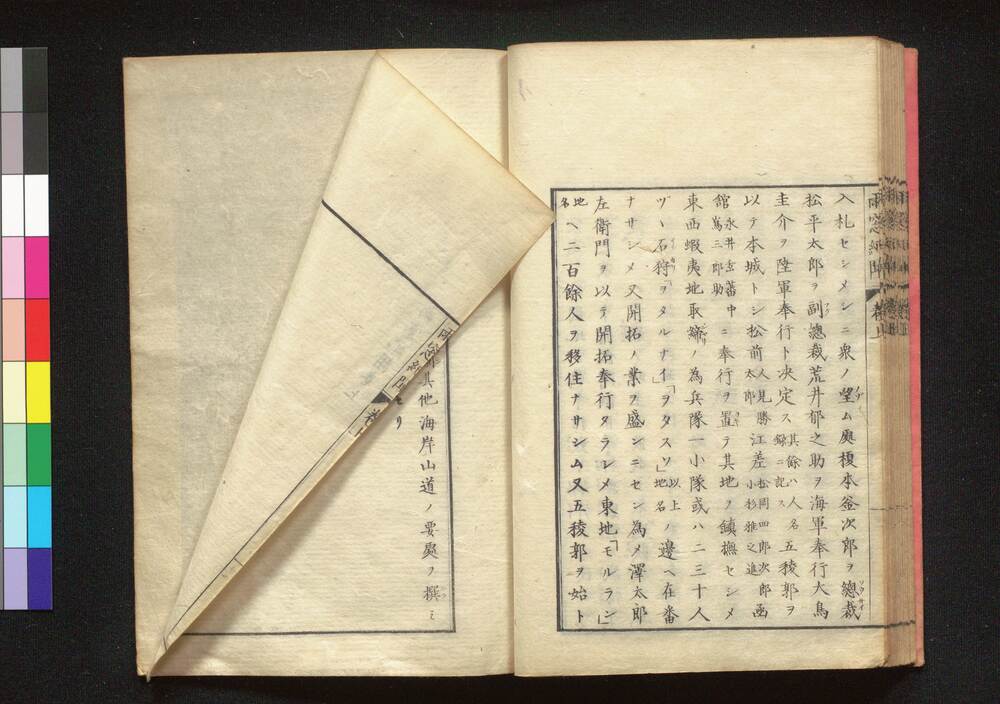 入札セシメシニ衆ノ望ム處榎本釜次郎ヲ總裁
松平太郎ヲ副總裁荒井郁之助ヲ海軍奉行大鳥
圭介ヲ陸軍奉行ト决定ス其餘ハ人名録ニ記ス五稜郭ヲ
以テ本城トシ松前人見勝太郎江差松岡四郎次郎小杉雅之進函
館永井玄蕃中島三郎助ニ奉行ヲ置テ其地ヲ鎮撫セシメ
東西蝦夷地取締ノ為兵隊一小隊或ハ二三十人
ヅヽ石狩「ヲタルナイ」「ヲタスツ」以上地名ノ邊ヘ在番
ナサシメ又開拓ノ業ヲ盛ンニセン為メ澤太郎
左衛門ヲ以テ開拓奉行タラシメ東地「モルラン」
地名ヘ二百餘人ヲ移住ナサシム又五稜郭ヲ始ト
其他海岸山道ノ要處ヲ撰ミ